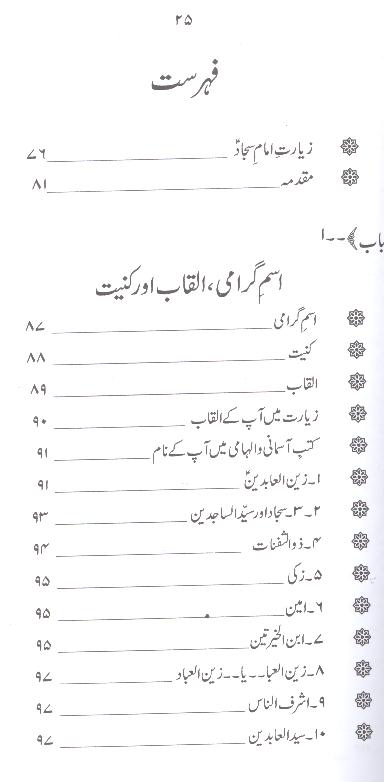 ۲۵
فہرست
زیارتِ امام سجادؑ ۷۶
مقدمہ ۸۱
باب ۔۔۱
اسمِ گرامی، القاب اور کنیت
اسمِ گرامی ۸۷
کنیت ۸۸
القاب ۸۹
زیارت میں آپ کے القاب ۹۰
کتبِ آسمانی والہامی میں آپ کے نام ۹۱
۱۔زین العابدینؑ ۹۱
۲۔۳۔سجاد اور سیّد الساجدین ۹۳
۴۔ذوالثفنات ۹۴
۵۔زکی ۹۵
۶۔امین ۹۵
۷۔ابن الخیرتین ۹۵
۸۔زین العبا۔۔یا۔۔زین العباد ۹۷
۹۔اشرف الناس ۹۷
۱۰۔سید العابدین ۹۷